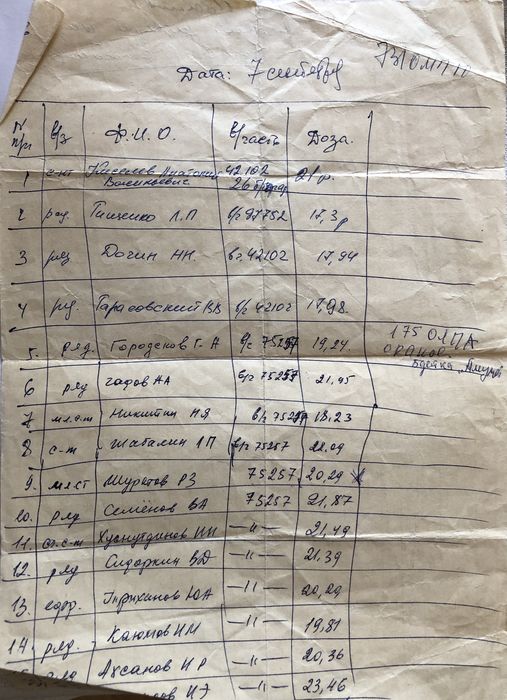 Дата: 7 сентября
N п/п в/з Ф.И.О. в/часть Доза.
1 с-нт Киселев Анатолий 42102 21 р.
Васильевич 26 бригад
2 ряд Тищенко Л.П в/ч 97752 17,3 р
3 ряд Догин НН. в.ч 42102 17,94
4 ряд. Тарасовский ВВ в/ч 42102 17,98.
5. ряд. Городсков Г.А в/ч 75257 19,24 175 ОЛПА
6 ряд гафов АА в/ч 75257 21,95
7 мл.с-т Никитин НЯ в/ч 75257 18,23
8 с-т Шабалин 1П в/ч 75257 22,09
9. мл.ст Шуратов РЗ 75257 20,29
10. ряд Семёнов ВА 75257 21,87
11. ст.с-т Хуснутдинов ИИ — " — 21,49
12. ряд Сидоркин ВД — " — 21,39
13. ефр. ЮА — " — 20,29
14. ряд. Каюмов ИМ — " — 19,81
Аксанов ИР — " — 20,36
ИЭ — " — 23,46